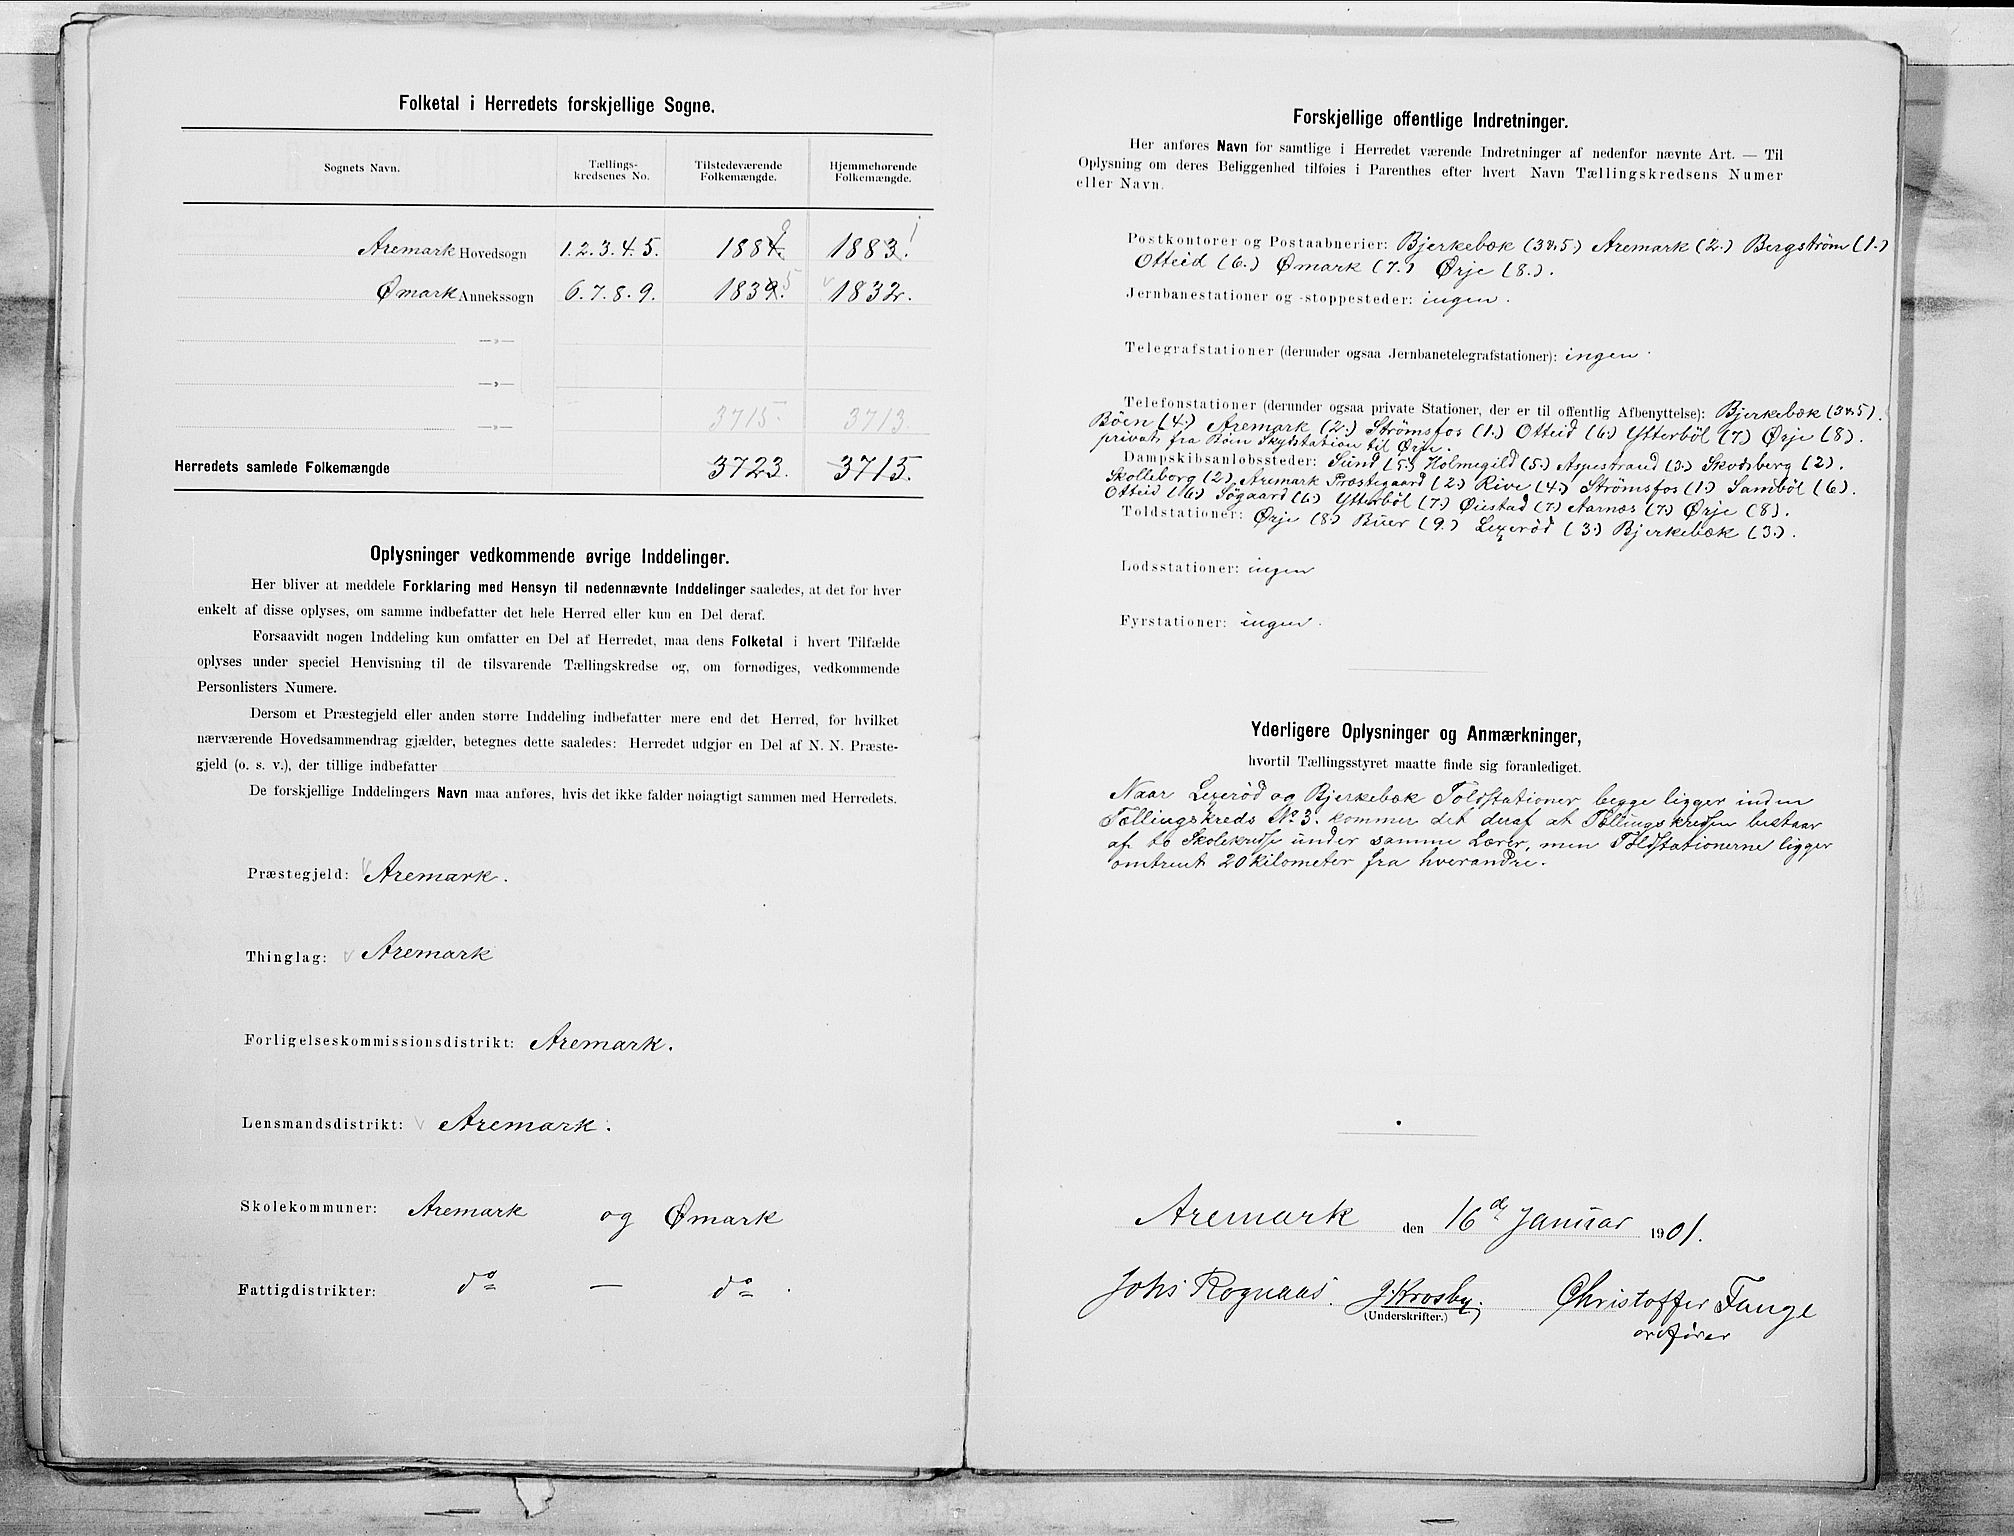 Folketal i Herredets forskjellige Sogne.
Sognets Navn.
Tællings-
kredsenes No.
Tilstedeværende
Folkemængde.
Hjemmehørende
Folkemængde.
Aremark Hovedsogn 1.2.3.4.5. 1884. 1883.
Ømark Annekssogn 6.7.8.9. 1839. 5 1832.
—»—
—»—
3715. 3713
—»—
Herredets samlede Folkemængde 3723. 3715.
Oplysninger vedkommende øvrige Inddelinger.
Her bliver at meddele Forklaring med Hensyn til nedennævnte Inddelinger saaledes, at det for hver
enkelt af disse oplyses, om samme indbefatter det hele Herred eller kun en Del deraf.
Forsaavidt nogen Inddeling kun omfatter en Del af Herredet, maa dens Folketal i hvert Tilfælde
oplyses under speciel Henvisning til de tilsvarende Tællingskredse og, om fornødiges, vedkommende
Personlisters Numere.
Dersom et Præstegjeld eller anden større Inddeling indbefatter mere end det Herred, for hvilket
nærværende Hovedsammendrag gjælder, betegnes dette saaledes: Herredet udgjør en Del af N. N. Præste-
gjeld (o. s. v.), der tillige indbefatter
De forskjellige Inddelingers Navn maa anføres, hvis det ikke falder nøiagtigt sammen med Herredets.
Præstegjeld: Aremark.
Thinglag: Aremark
Forligelseskommissionsdistrikt: Aremark.
Lensmandsdistrikt: Aremark.
Skolekommuner: Aremark og Ømark
Fattigdistrikter: do — do.
Forskjellige offentlige Indretninger.
Her anføres Navn for samtlige i Herredet værende Indretninger af nedenfor nævnte Art. — Til
Oplysning om deres Beliggenhed tilføies i Parenthes efter hvert Navn Tællingskredsens Numer
eller Navn.
Postkontorer og Postaabnerier: Bjerkebæk (3 v. 5) Aremark (2.) Bergström (1.)
Otteid (6.) Ømark (7.) Ørje (8.).
Jernbanestationer og -stoppesteder: ingen.
Telegrafstationer (derunder ogsaa Jernbanetelegrafstationer): ingen.
Telefonstationer (derunder ogsaa private Stationer, der er til offentlig Afbenyttelse): Bjerkebæk (3 v. 5).
Böen (4.) Aremark (2.) Strömsfos (1.) Otteid (6.) Ytterböl (7) Ørje (8).
privat fra Böen Skydstation til Ørje.
Dampskibsanløbssteder: Sund (5.) Holmegild (5.) Aspestrand (3.) Skodsberg (2).
Skolleborg (2), Aremark Præstegaard (2.) Rive (4.) Strömsfos (1.) Samböl (6).
Otteid (6.) Sögaard (6.) Ytterböl (7) Øiestad (7) Aarnæs (7.) Ørje (8).
Toldstationer: Ørje (8.) Buer (9.) Lexeröd (3.) Bjerkebæk (3.).
Lodsstationer: ingen
Fyrstationer: ingen.
Yderligere Oplysninger og Anmærkninger,
hvortil Tællingsstyret maatte finde sig foranlediget.
Naar Lexeröd og Bjerkebæk Toldstationer begge ligger inden
Tællingskreds No 3. kommer det deraf at Tællingskredsen bestaar
af to Skolekredse under samme Lærer, men Toldstationerne ligger
omtrent 20 kilometer fra hverandre.
Aremark den 16de Januar 1901.
Johs Rognaas. J. Krosby. Christoffer Tange
(Underskrifter.)
ordfører